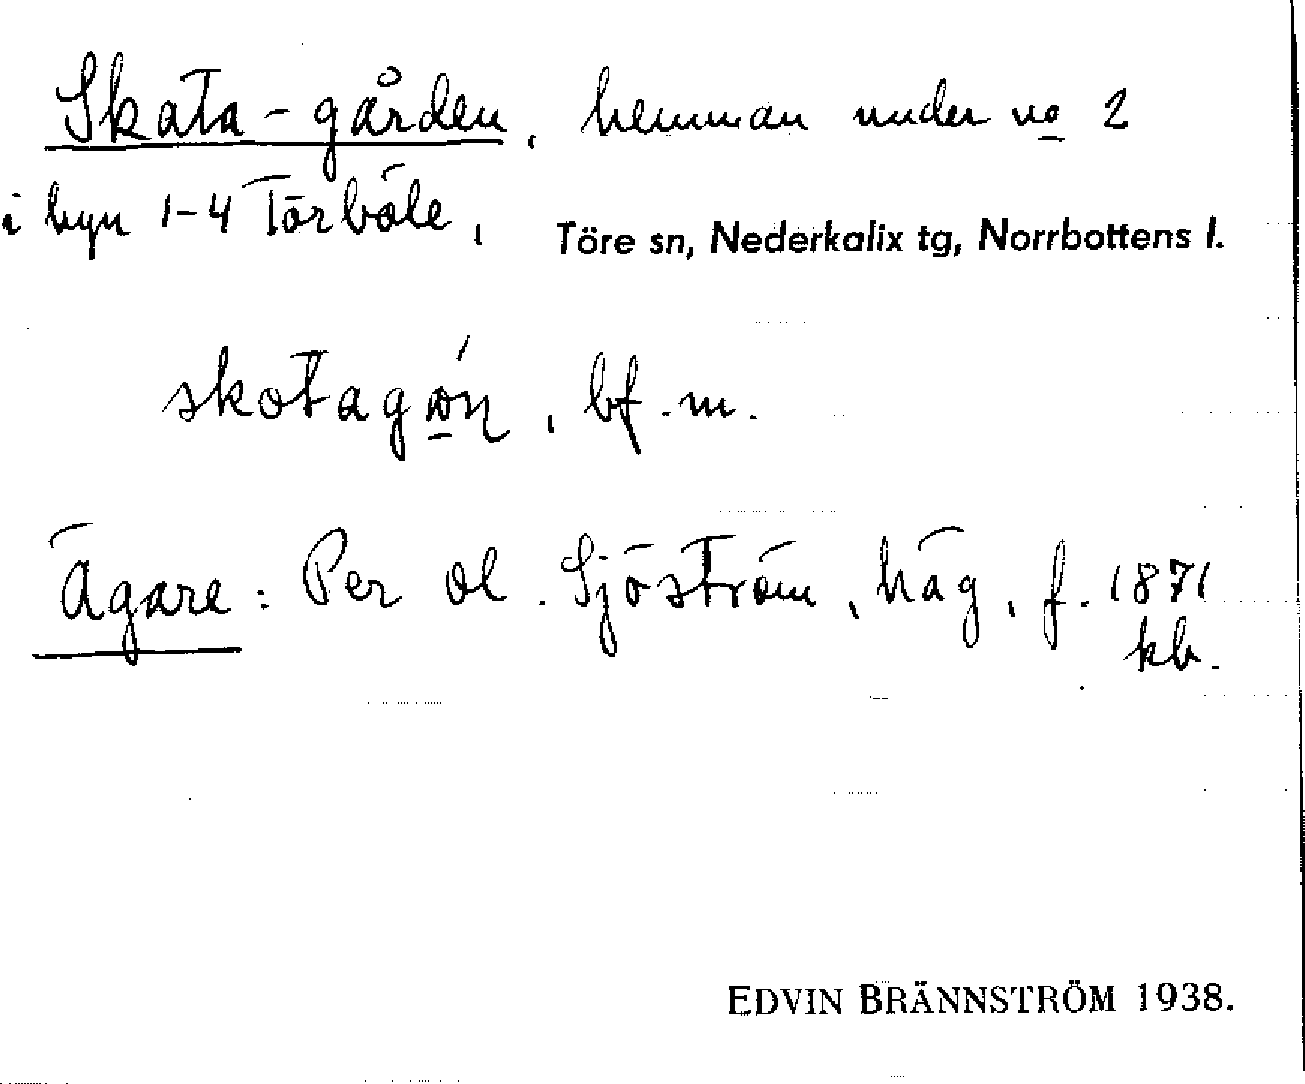 Skata-gården, hemman under no 2
i byn 1-4 Törböle, Töre sn, Nederkalix tg, Norrbottens l.
bf. m.
Ägare: Per Ol. Sjöström, häg, f. 1871
kb.
EDVIN BRÄNNSTRÖM 1938.